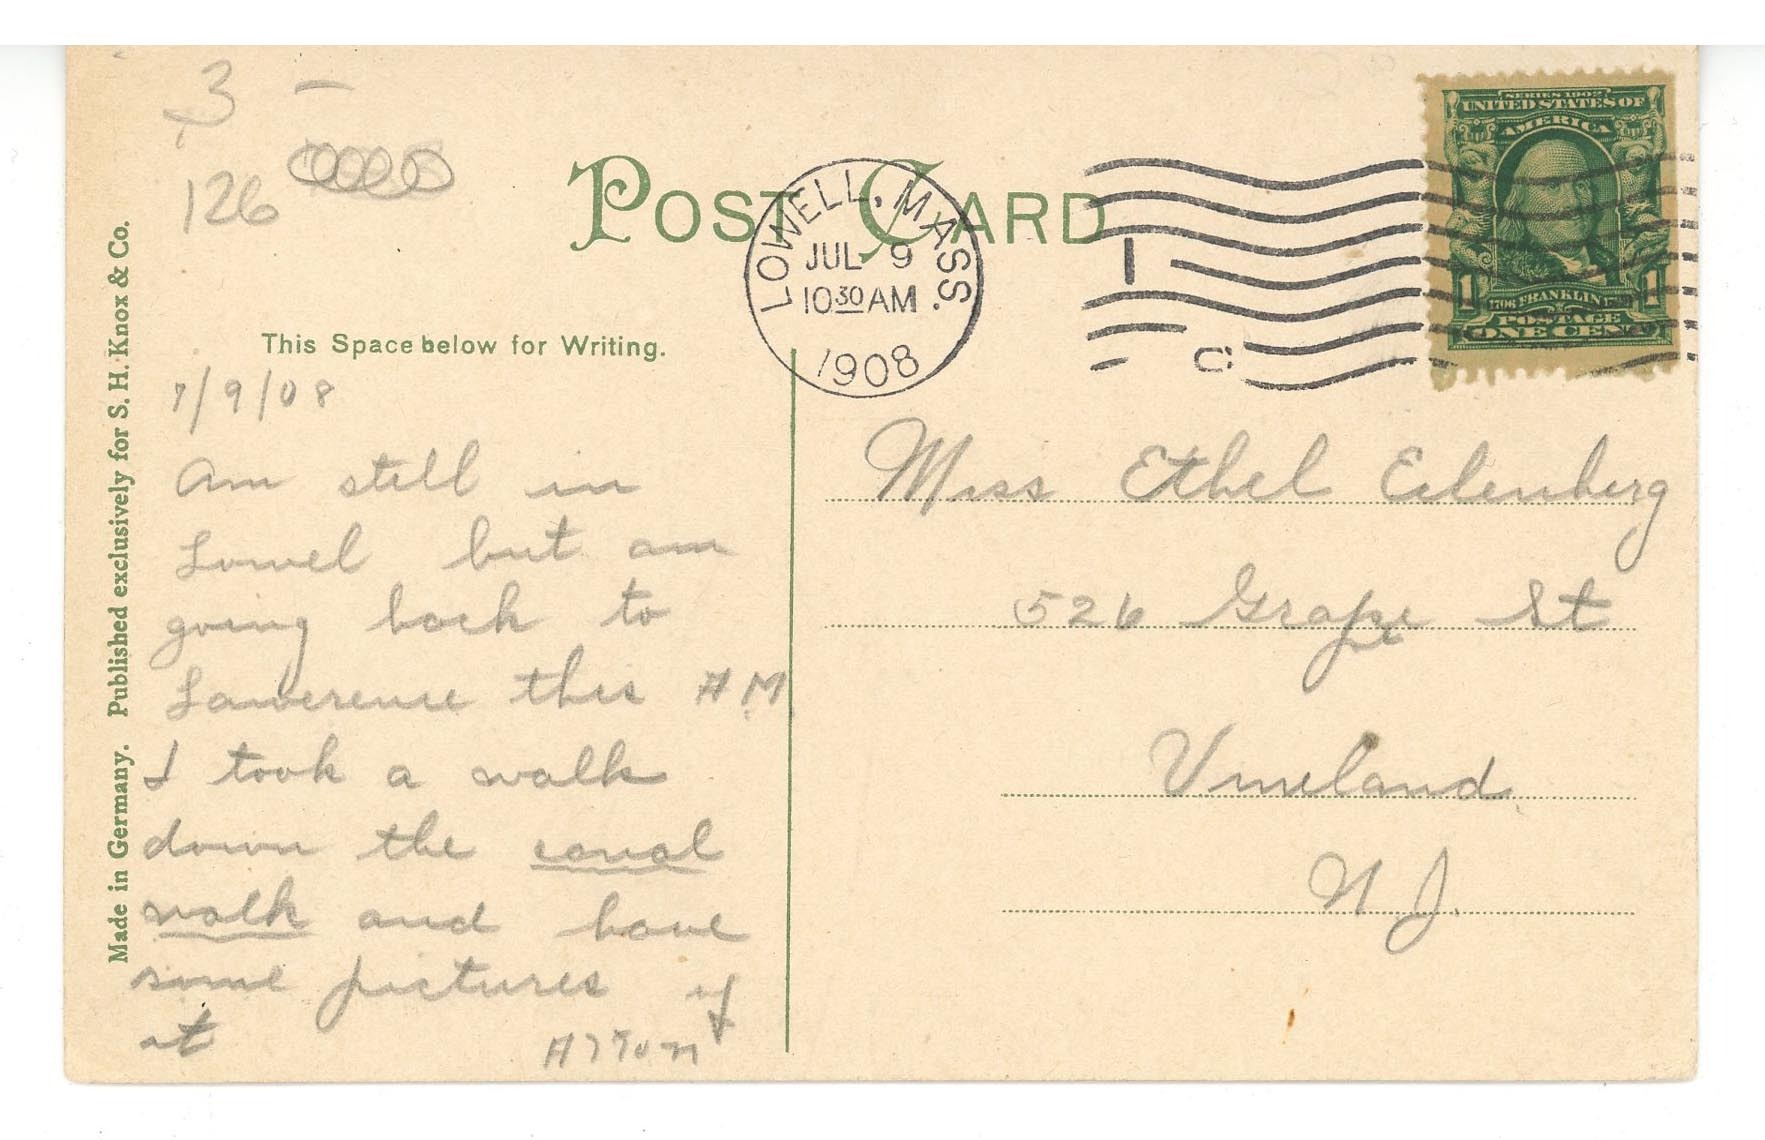 3 -
126
POST CARD
LOWELL, MASS.
JUL 9
10 30 AM
1908
1
C
SERIES 1902
UNITED STATES OF
AMERICA
1706 FRANKLIN 1790
POSTAGE
1 1
ONE CENT
Made in Germany. Published exclusively for S. H. Knox & Co.
This Space below for Writing.
7/9/08
Am still in
Lowel but am
going back to
Lawerence this AM
I took a walk
down the canal
walk and have
some pictures of
it
Miss Ethel Eilenberg
526 Grape St
Vineland
N J.